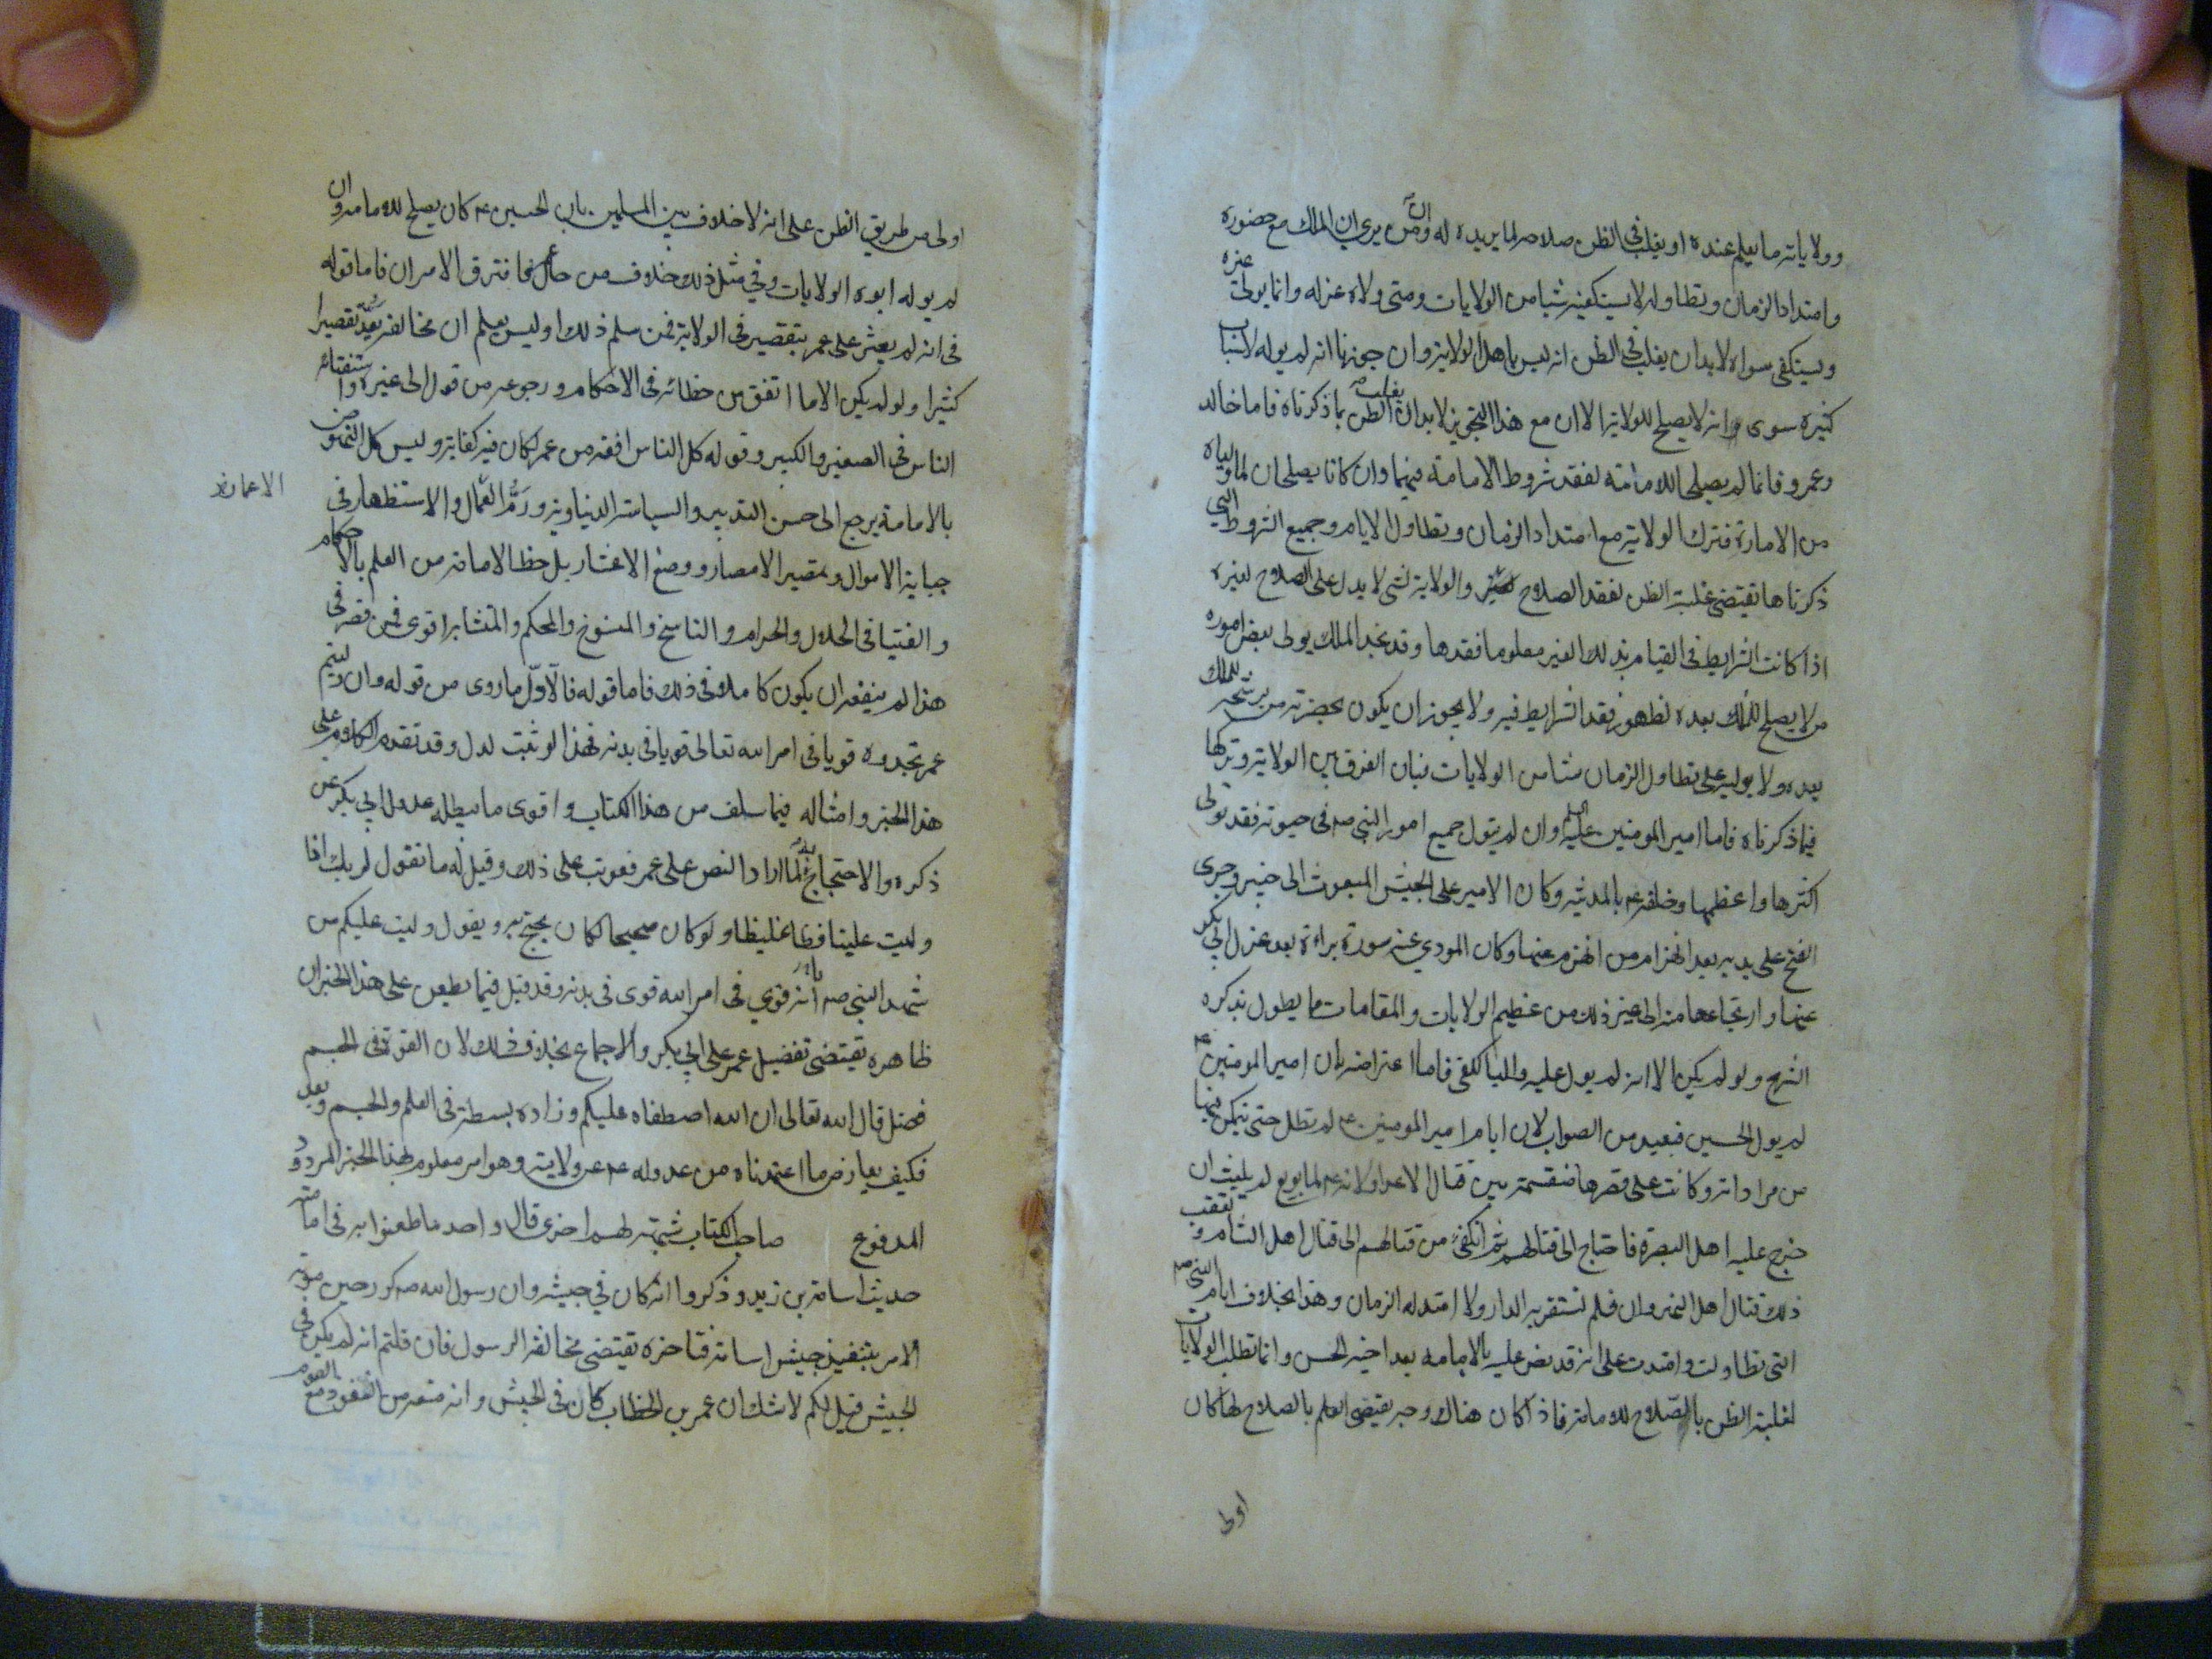 وولاياته ما يعلم عنده او يغلب في الظن صلاحه لما يريده له وان من يرى ان الملك مع حضوره
وامتداد الزمان وتطاوله لا يستكفيه شيا من الولايات ومتى ولاه عزله وانما يولى غيره
ويستكفى سواه لا بد ان يغلب في الظن انه ليس باهل الولاية وان جوزنا انه لم يوله لاسباب
كثيرة سوى انه لا يصلح للولاية الا ان مع هذا التجويز لا بد ان يغلب الظن بما ذكرناه فاما خالد
وعمرو فانما لم يصلحا للامامة لفقد شروط الامامة فيهما وان كانا يصلحان لما ولياه
من الامارة فترك الولاية مع امتداد الزمان وتطاول الايام وجميع الشروط التي
ذكرناها تقتضى غلبة الظن لفقد الصلاح والولاية لشى لا يدل على الصلاح لغيره
اذا كانت الشرايط في القيام بذلك الغير معلوما فقدها وقد نجد الملك يولى بعض اموره
من لا يصلح للملك بعده لظهور فقد الشرايط فيه ولا يجوز ان يكون بحضرته من يرشحه للملك
بعده ولا يوليه على تطاول الزمان شيا من الولايات فبان الفرق بين الولاية وتركها
فيما ذكرناه فاما امير المومنين عليه السلم وان لم يتول جميع امور النبي صم في حيوته فقد تولى
اكثرها واعظمها وخلفه عم بالمدينة وكان الامير على الجيش المبعوث الى خيبر وجرى
الفتح على يديه بعد انهزام من انهزم عنها وكان المودي عنه سورة براءة بعد عزل ابي بكر
عنها وارتجاعها منه الى غير ذلك من عظيم الولايات والمقامات ما يطول بذكره
الشرح ولو لم يكن الا انه لم يول عليه واليا لكفى فاما اعتراضه بان امير المومنين عم
لم يول الحسين فبعيد من الصواب لان ايام امير المومنين عم لم تطل حتى يتمكن فيها
من مراداته وكانت على قصرها منقسمة بين قتال الاعدا ولانه عم لما بويع لم يلبث ان
خرج عليه اهل البصرة فاحتاج الى قتالهم ثم انكفى من قتالهم الى قتال اهل الشام وتعقب
ذلك قتال اهل النهروان فلم تستقر به الدار ولا امتد له الزمان وهذا بخلاف ايام النبي صم
التى تطاولت وامتدت على انه قد نص عليه بالامامه بعد اخيه الحسن وانما تطلب الولايات
لغلبة الظن بالصلاح للامامة فاذا كان هناك وجه يقتضى العلم بالصلاح لها كان
اولى
اولى من طريق الظن على انه لا خلاف بين المسلمين بان الحسين عم كان يصلح للامامة وان
لم يوله ابوه الولايات وفي مثل ذلك خلاف من حال عمر فافترق الامران فاما قوله
فى انه لم يعثر على عمر بتقصير في الولاية فمن سلم ذلك اوليس يعلم ان مخالفته يعد تقصيرا
كثيرا ولو لم يكن الا ما اتفق من خطائه في الاحكام ورجوعه من قول الى غيره واستفتائه
الناس في الصغير والكبير وقوله كل الناس افقه من عمر لكان فيه كفاية وليس كل النهوض
بالامامة يرجع الى حسن التدبير والسياسة الدنياوية ورم العمال والاستظهار في
الاعمال
جباية الاموال وتمصير الامصار ووضع الاعشار بل حظ الامامة من العلم بالاحكام
والفتيا في الحلال والحرام والناسخ والمنسوخ والمحكم والمتشابه اقوى فمن قصر في
هذا لم ينفعه ان يكون كاملا في ذلك فاما قوله فالاول ما روى من قوله وان وليتم
عمر تجدوه قويا في امر الله تعالى قويا في بدنه فهذا لو ثبت لدل وقد تقدم الكلام على
هذا الخبر وامثاله فيما سلف من هذا الكتاب واقوى ما يبطله عدول ابي بكر عن
ذكره والاحتجاج به لما اراد النص على عمر فعوتب على ذلك وقيل له ما تقول لربك اذا
وليت علينا فظا غليظا ولو كان صحيحا لكان يحتج به ويقول وليت عليكم من
شهد النبي صم بانه قوي في امر الله قوى في بدنه وقد قيل فيما يطعن على هذا الخبر ان
ظاهره يقتضى تفضيل عمر على ابي بكر والاجماع بخلاف ذلك لان القوة في الجسم
فضل قال الله تعالى ان الله اصطفاه عليكم وزاده بسطة في العلم والجسم وبعد
فكيف يعارض ما اعتمدناه من عدوله عم عن ولايته وهو امر معلوم بهذا الخبر المردود
المدفوع صاحب الكتاب شبهة لهم اخرى قال واحد ما طعنوا به في امامته
حديث اسامة بن زيد وذكروا انه كان في جيشه وان رسول الله صم كرر حين موته
الامر بتنفيذ جيش اسامة فتاخره يقتضى مخالفة الرسول فان قلتم انه لم يكن في
الجيش قيل لكم لا شك ان عمر بن الخطاب كان في الجيش وانه منعه من النفوذ مع القوم